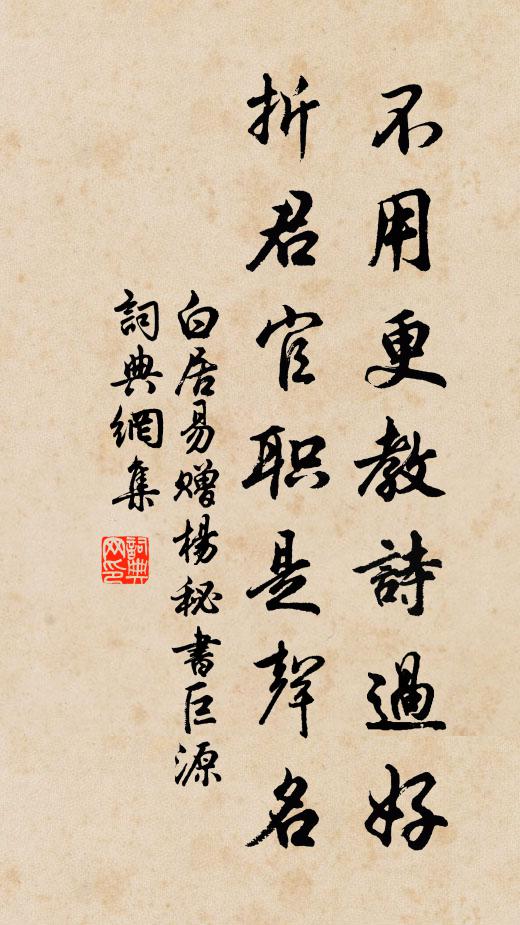 不用更教詩過好
折君官职是聲名
白居易赠楊秘書巨源
詞典網集
詞典网印